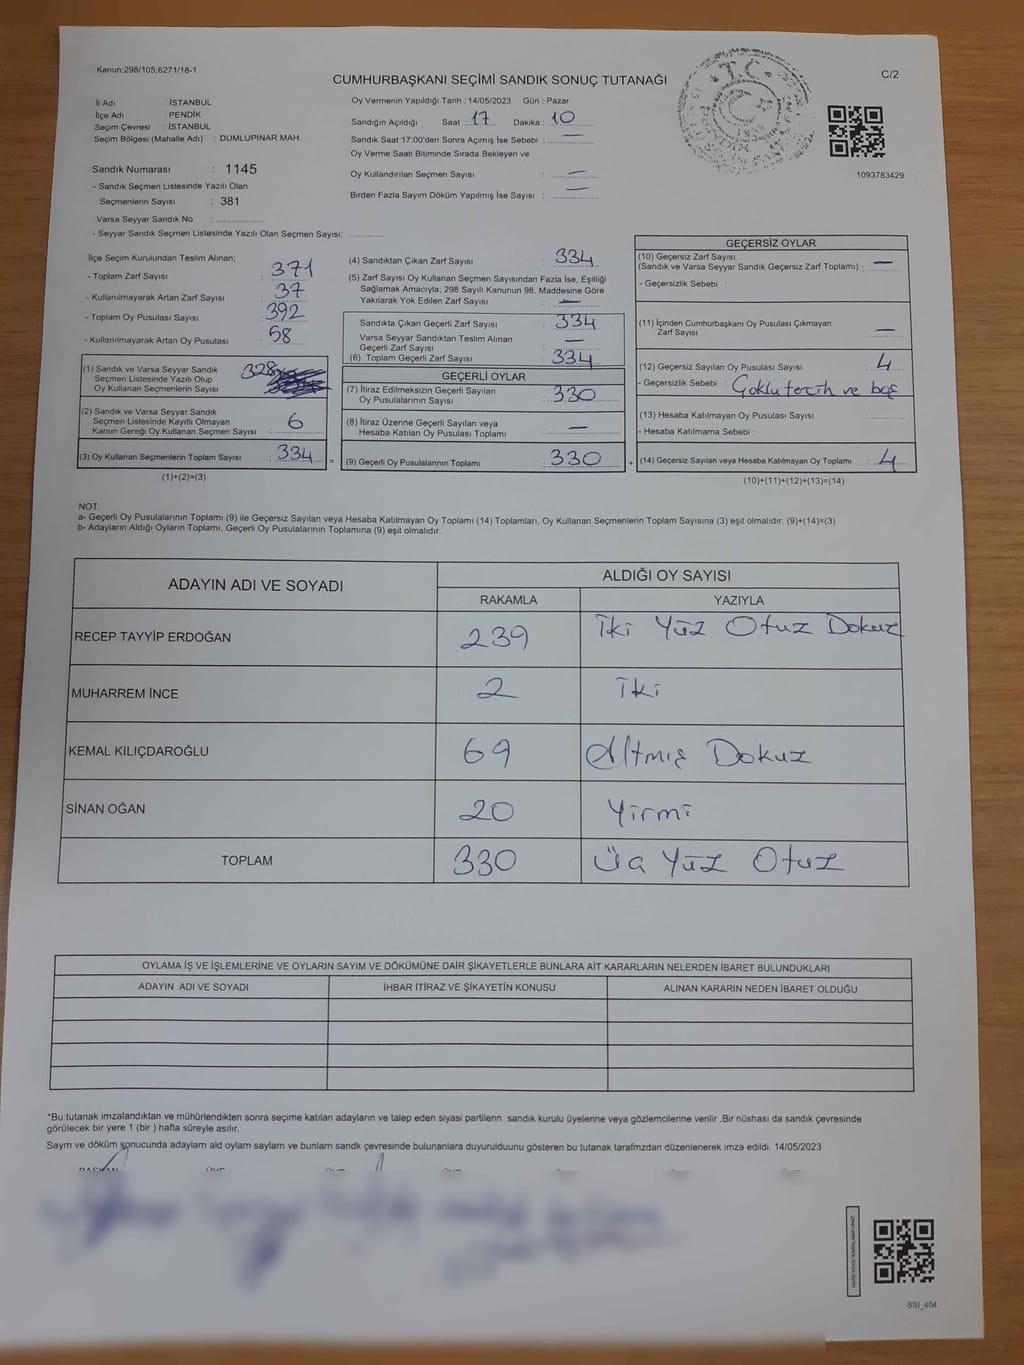 Kanun:298/105;6271/18-1
C/2
CUMHURBAŞKANI SEÇİMİ SANDIK SONUÇ TUTANAĞI
T.C.
İl Adı : İSTANBUL
İlçe Adı : PENDİK
Seçim Çevresi : İSTANBUL
Seçim Bölgesi (Mahalle Adı) : DUMLUPINAR MAH.
Oy Vermenin Yapıldığı Tarih : 14/05/2023 Gün : Pazar
Sandığın Açıldığı Saat : 17 Dakika : 10
Sandık Saat 17:00'den Sonra Açımış İse Sebebi : —
Oy Verme Saati Bitiminde Sırada Bekleyen ve
Oy Kullandırılan Seçmen Sayısı : —
Birden Fazla Sayım Döküm Yapılmış İse Sayısı : —
1093783429
Sandık Numarası : 1145
- Sandık Seçmen Listesinde Yazılı Olan
Seçmenlerin Sayısı : 381
Varsa Seyyar Sandık No :
- Seyyar Sandık Seçmen Listesinde Yazılı Olan Seçmen Sayısı:
İlçe Seçim Kurulundan Teslim Alınan;
- Toplam Zarf Sayısı : 371
- Kullanılmayarak Artan Zarf Sayısı : 37
- Toplam Oy Pusulası Sayısı : 392
- Kullanılmayarak Artan Oy Pusulası : 58
(1) Sandık ve Varsa Seyyar Sandık
Seçmen Listesinde Yazılı Olup
Oy Kullanan Seçmenlerin Sayısı : 328
(2) Sandık ve Varsa Seyyar Sandık
Seçmen Listesinde Kayıtlı Olmayan
Kanun Gereği Oy Kullanan Seçmen Sayısı : 6
(3) Oy Kullanan Seçmenlerin Toplam Sayısı : 334
(1)+(2)=(3)
(4) Sandıktan Çıkan Zarf Sayısı : 334
(5) Zarf Sayısı Oy Kullanan Seçmen Sayısından Fazla İse, Eşitliği
Sağlamak Amacıyla; 298 Sayılı Kanunun 98. Maddesine Göre
Yakılarak Yok Edilen Zarf Sayısı : —
Sandıkta Çıkan Geçerli Zarf Sayısı : 334
Varsa Seyyar Sandıktan Teslim Alınan
Geçerli Zarf Sayısı : —
(6) Toplam Geçerli Zarf Sayısı : 334
GEÇERLİ OYLAR
(7) İtiraz Edilmeksizin Geçerli Sayılan
Oy Pusulalarının Sayısı : 330
(8) İtiraz Üzerine Geçerli Sayılan veya
Hesaba Katılan Oy Pusulası Toplamı : —
(9) Geçerli Oy Pusulalarının Toplamı : 330
GEÇERSİZ OYLAR
(10) Geçersiz Zarf Sayısı
(Sandık ve Varsa Seyyar Sandık Geçersiz Zarf Toplamı) : —
- Geçersizlik Sebebi :
(11) İçinden Cumhurbaşkanı Oy Pusulası Çıkmayan
Zarf Sayısı : —
(12) Geçersiz Sayılan Oy Pusulası Sayısı : 4
- Geçersizlik Sebebi : Çoklu tercih ve boş
(13) Hesaba Katılmayan Oy Pusulası Sayısı :
- Hesaba Katılmama Sebebi :
(14) Geçersiz Sayılan veya Hesaba Katılmayan Oy Toplamı : 4
(10)+(11)+(12)+(13)=(14)
NOT:
a- Geçerli Oy Pusulalarının Toplamı (9) ile Geçersiz Sayılan veya Hesaba Katılmayan Oy Toplamı (14) Toplamları, Oy Kullanan Seçmenlerin Toplam Sayısına (3) eşit olmalıdır. (9)+(14)=(3)
b- Adayların Aldığı Oyların Toplamı, Geçerli Oy Pusulalarının Toplamına (9) eşit olmalıdır.
ADAYIN ADI VE SOYADI
ALDIĞI OY SAYISI
RAKAMLA YAZIYLA
RECEP TAYYİP ERDOĞAN 239 İki Yüz Otuz Dokuz
MUHARREM İNCE 2 İki
KEMAL KILIÇDAROĞLU 69 Altmış Dokuz
SİNAN OĞAN 20 Yirmi
TOPLAM 330 Üç Yüz Otuz
OYLAMA İŞ VE İŞLEMLERİNE VE OYLARIN SAYIM VE DÖKÜMÜNE DAİR ŞİKAYETLERLE BUNLARA AİT KARARLARIN NELERDEN İBARET BULUNDUKLARI
ADAYIN ADI VE SOYADI İHBAR İTİRAZ VE ŞİKAYETİN KONUSU ALINAN KARARIN NEDEN İBARET OLDUĞU
*Bu tutanak imzalandıktan ve mühürlendikten sonra seçime katılan adayların ve talep eden siyasi partilerin sandık kurulu üyelerine veya gözlemcilerine verilir .Bir nüshası da sandık çevresinde
görülecek bir yere 1 (bir ) hafta süreyle asılır.
Sayım ve döküm sonucunda adaylarn ald oylarn saylarn ve bunlarn sandk çevresinde bulunanlara duyurulduunu gösteren bu tutanak tarafmzdan düzenlenerek imza edildi. 14/05/2023
SSI_404